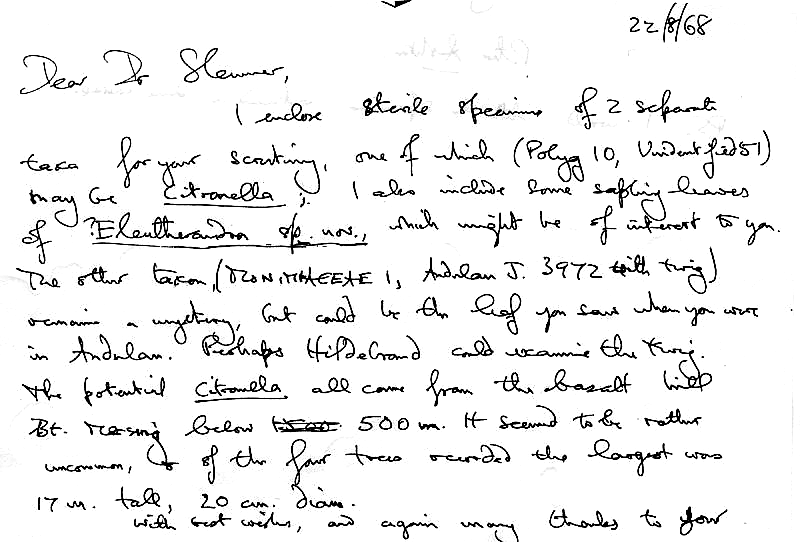 22/8/68
Dear Dr Sleumer,
I enclose sterile specimens of 2 separate
taxa for your scrutiny, one of which (Polyg 10, Unidentified 51)
may be Citronella; I also include some sapling leaves
of Eleutherandra sp. nov., which might be of interest to you.
The other taxon, (MONIMIACEAE 1, Andulau J. 3972 with twig)
remains a mystery, but could be the leaf you saw when you were
in Andulau. Perhaps Hildebrand could examine the twig.
The potential Citronella all came from the basalt hill
Bt. below 500 m. It seemed to be rather
uncommon, & of the four trees recorded the largest was
17 m. tall, 20 cm. diam.
with best wishes, and again many thanks to your